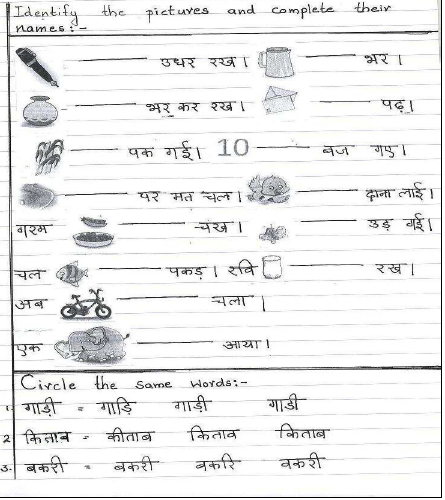 Identify the pictures and complete their
names:-
उधर रख । भर ।
भर कर रख । पढ़ ।
पक गई । 10 बज गए ।
पर मत चल । दाना लाई ।
गरम चख । उड़ गई ।
चल पकड़ । रवि रख ।
अब चला ।
एक आया ।
Circle the same words:-
1. गाड़ी = गाड़ि गाड़ी गाडी
2 किताब = कीताब किताव किताब
3. बकरी = बकरी वकरि वकरी